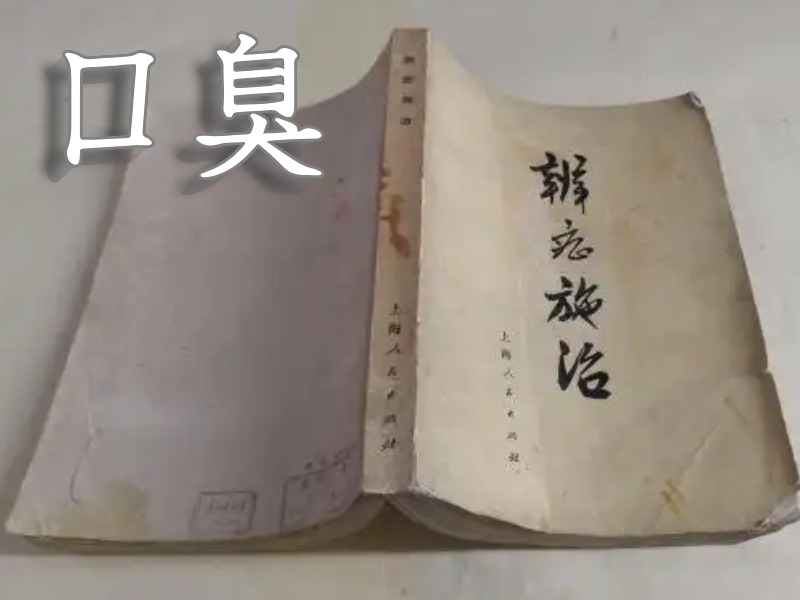 口臭
辨症施治
上海人民出版社
辨症施治
上海人民出版社